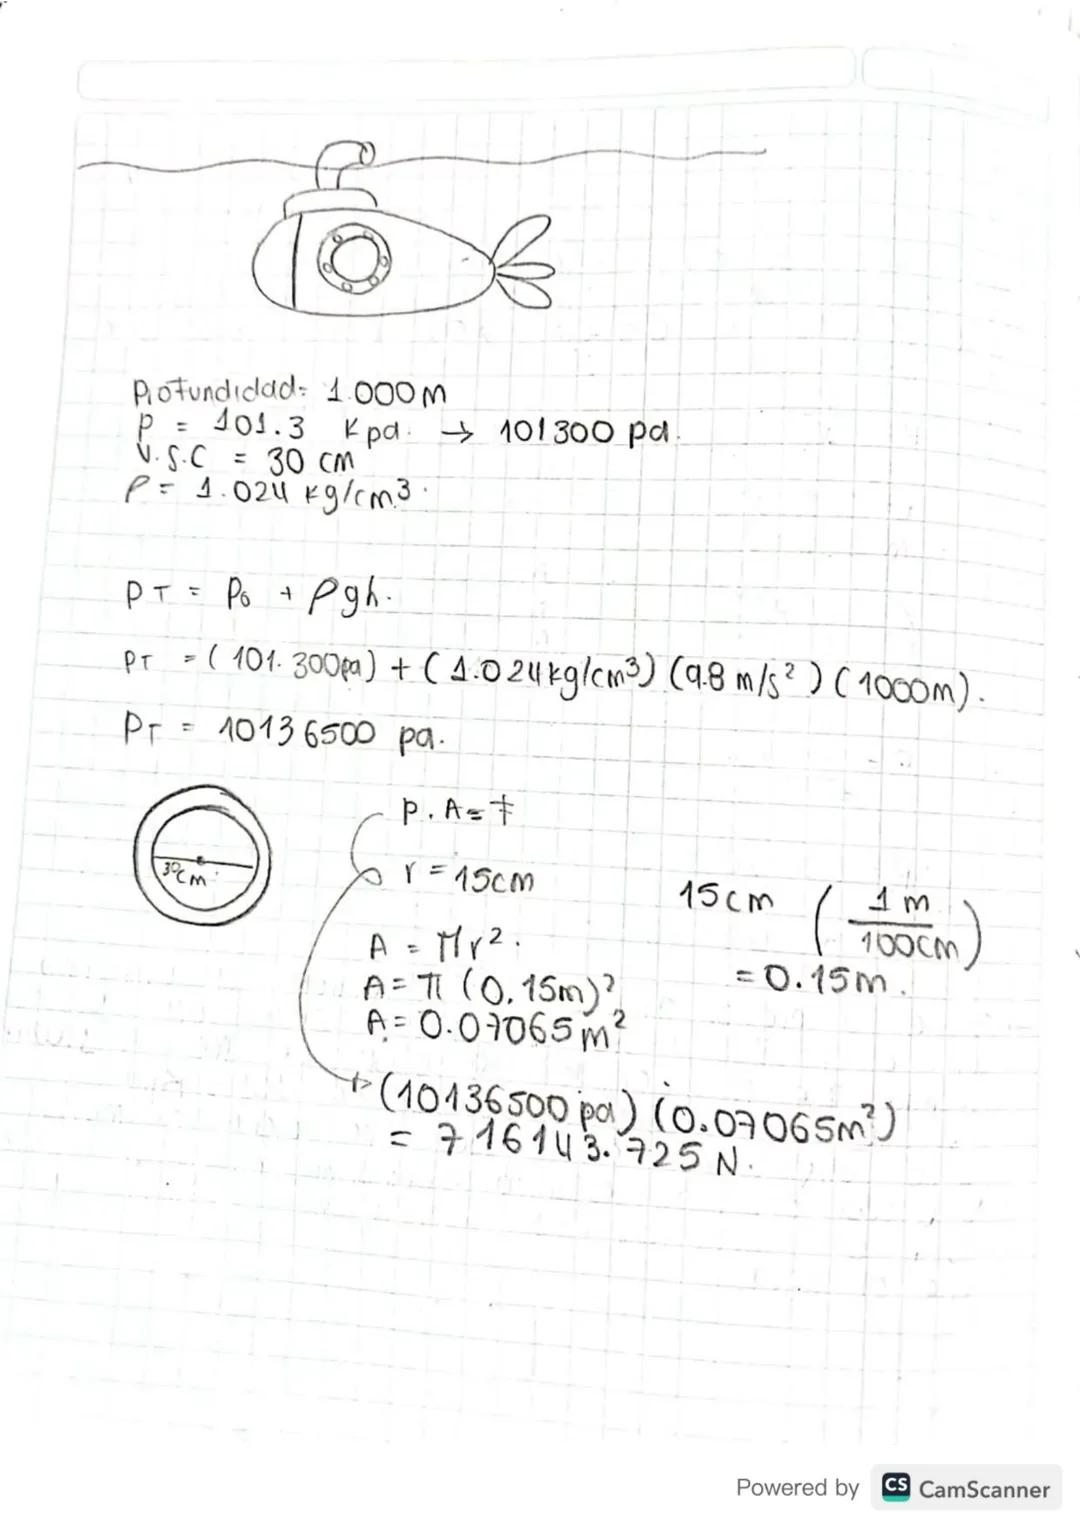 Profundidad= 1.000 m
P = 101.3 Kpa. → 101300 pa.
V.S.C = 30 cm
ρ = 1.024 kg/cm3.
PT = P0 + ρgh.
PT = (101.300pa) + (1.024kg/cm3) (9.8 m/s2) (1000m).
PT = 10136500 pa.
30cm
P. A = F
r = 15cm
15cm (1 m / 100cm)
= 0.15m.
A = πr2.
A = π (0.15m)2
A = 0.07065 m2
→ (10136500 pa) (0.07065m2)
= 716143.725 N.
Powered by CS CamScanner